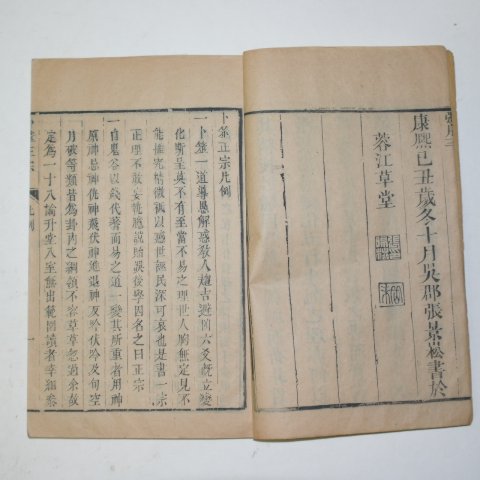 康熙己丑歲冬十月吳郡張景崧書於
蓉江草堂
卜筮正宗凡例
一卜筮一道導愚解惑教人趨吉避凶六爻既立變
化斯呈莫不有至當不易之理世人胸無定見不
能推究精微妄以惑世誣民深可哀也是書一宗
正理不敢妄挽邪說貽誤後學因名之曰正宗
一自鬼谷以錢代蓍而易之道一變其所重者用神
原神忌神仇神飛伏神進退神反吟伏吟及旬空
月破等類皆為卦內之綱領不容草草忽過余故
定為一十八論升堂入室無出範圍讀者幸細參
凡例
一